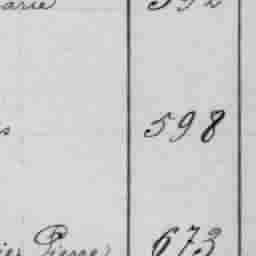 arie 592
s 598
ier Pierre 673